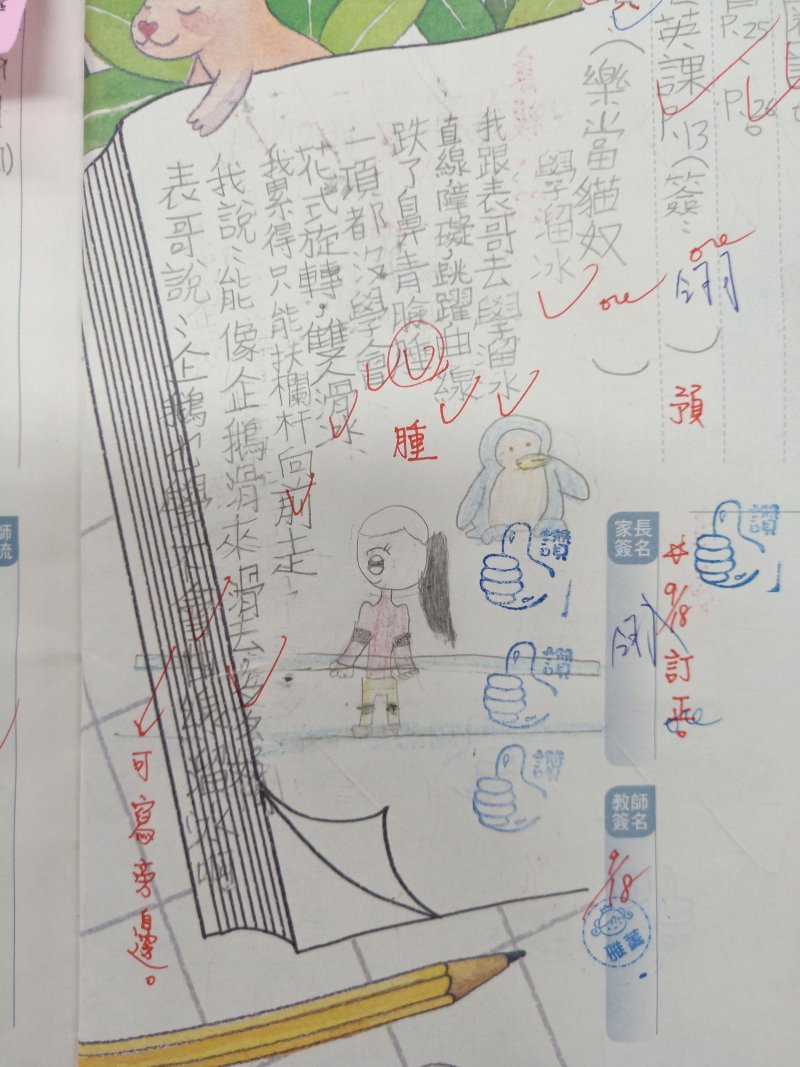 P.25、
P.26。
英課P.13(簽:
ore
(樂當貓奴)
學溜冰
ore
我跟表哥去學溜冰
直線障礙,跳躍曲線
跌了鼻青臉腫
腫
一項都沒學會
花式旋轉,雙人滑冰、
我累得只能扶欄杆向前走
我說:能像企鵝滑來滑去
表哥說:企鵝也學不會曲線溜冰啊
可寫旁邊。
預
讚
讚
讚
讚
家長簽名
9/18訂正。
教師簽名
9/18